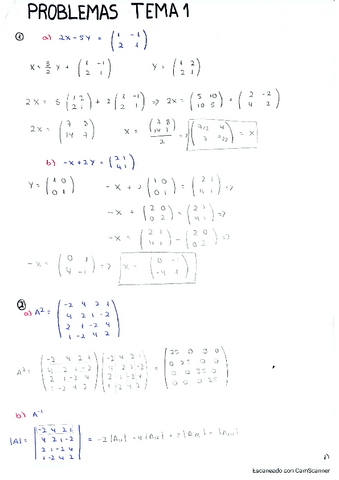 PROBLEMAS TEMA 1
① a) 2X-5Y = (1 -1 / 2 1)
X = 5/2 Y + (1 -1 / 2 1) Y = (1 2 / 2 1)
2X = 5 (1 2 / 2 1) + 2 (1 -1 / 2 1) => 2X = (5 10 / 10 5) + (2 -2 / 4 2)
2X = (7 8 / 14 7) X =
b) -X+2Y = (2 1 / 4 1)
Y = (1 0 / 0 1) -X + 2 (1 0 / 0 1) = (2 1 / 4 1) =>
-X + (2 0 / 0 2) = (2 1 / 4 1) =>
-X = (2 1 / 4 1) - (2 0 / 0 2) =>
-X = (0 1 / 4 -1) => X = (0 -1 / -4 1)
②
a) A² = (-2 4 2 1 / 4 2 1 -2 / 2 1 -2 4 / 1 -2 4 2)
A² = (-2 4 2 1 / 4 2 1 -2 / 2 1 -2 4 / 1 -2 4 2) (-2 4 2 1 / 4 2 1 -2 / 2 1 -2 4 / 1 -2 4 2) = (25 0 0 0 / 0 25 0 0 / 0 0 25 0 / 0 0 0 25)
b) A⁻¹
|A| = |-2 4 2 1 / 4 2 1 -2 / 2 1 -2 4 / 1 -2 4 2| =
Escaneado con CamScanner